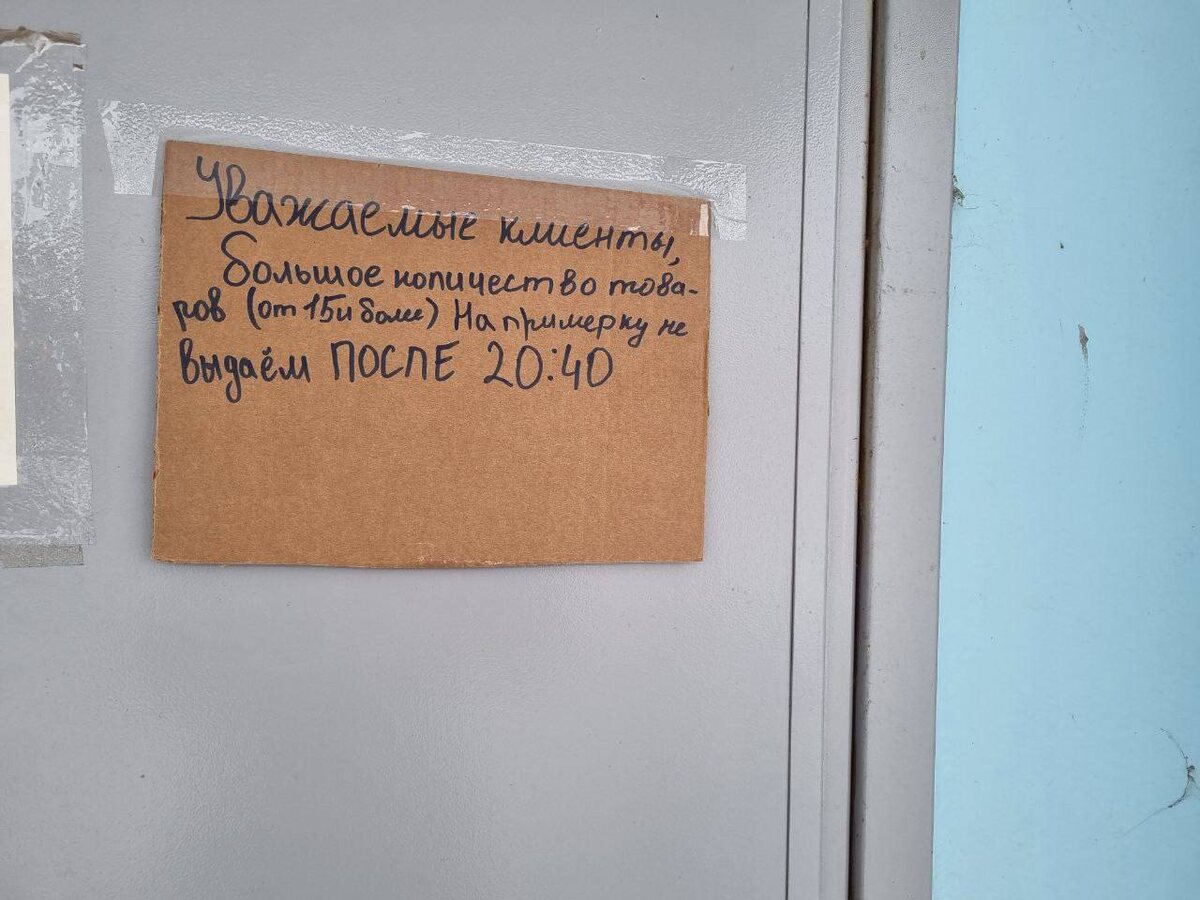 Уважаемые клиенты,
Большое количество това-
ров (от 15и более) На примерку не
выдаём ПОСЛЕ 20:40